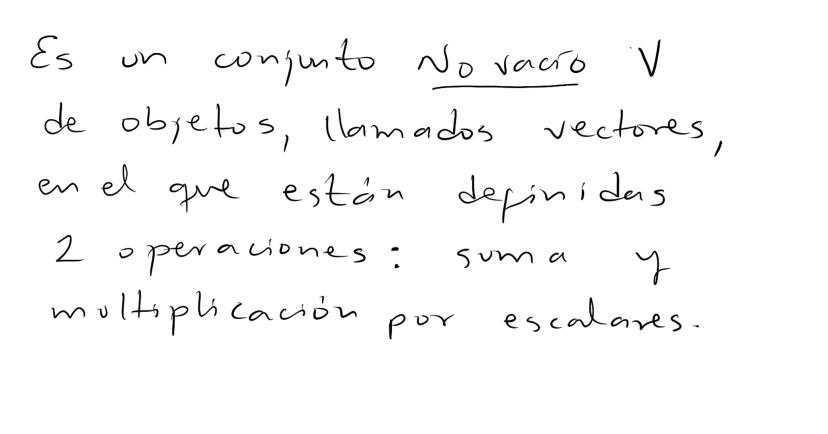 Es un conjunto No vacío V
de objetos, llamados vectores,
en el que están definidas
2 operaciones: suma y
multiplicación por escalares.